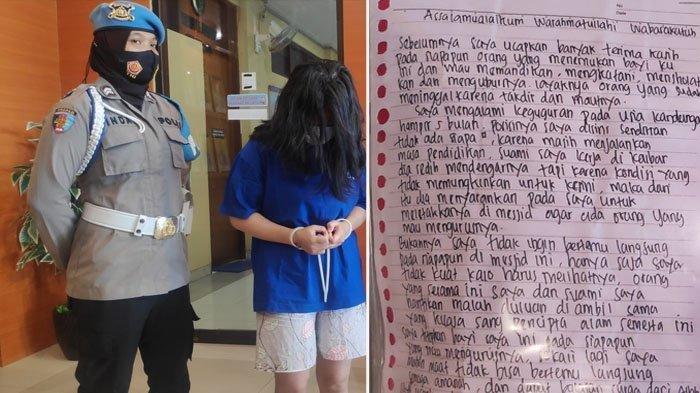 INDP
POLI
Assalamualaikum Warahmatullahi Wabarakatuh
Sebelumnya saya ucapkan banyak terima kasih
pada siapapun orang yang menemukan bayi ku
ini dan mau memandikan, mengkafani, mensholat
kan dan menguburnya layaknya orang yang sudah
meninggal karena takdir dan mautnya.
Saya mengalami keguguran pada usia kandungan
hampir 5 bulan, posisinya saya disini sendirian
tidak ada siapa", karena masih menjalankan
masa pendidikan, suami saya kerja di kalbar
dia sedih mendengarnya tapi karena kondisi yang
tidak memungkinkan untuk kesini, maka dari
itu dia menyarankan pada saya untuk
meletakkanya di mesjid agar ada orang yang
mau mengurusnya.
Bukannya saya tidak ingin bertemu langsung
pada siapapun di mesjid ini, hanya saja saya
tidak kuat kalo harus melihatnya, orang
yang selama ini saya dan suami saya
nantikan malah duluan di ambil sama
yang kuasa sang pencipta alam semesta ini
saya titipkan bayi saya ini pada siapapun
yang mau mengurusnya sekali lagi saya
mohon maaf tidak bisa bertemu langsung